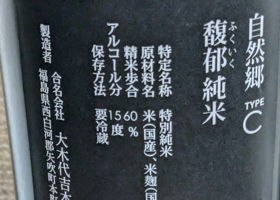 自然郷 TYPE C
ふくいく
馥郁純米
特定名称 特別純米
原材料名 米(国産)、米麹(国
精米歩合 60%
アルコール分 15度
保存方法 要冷蔵
製造者 合名会社 大木代吉本
福島県西白河郡矢吹町本町